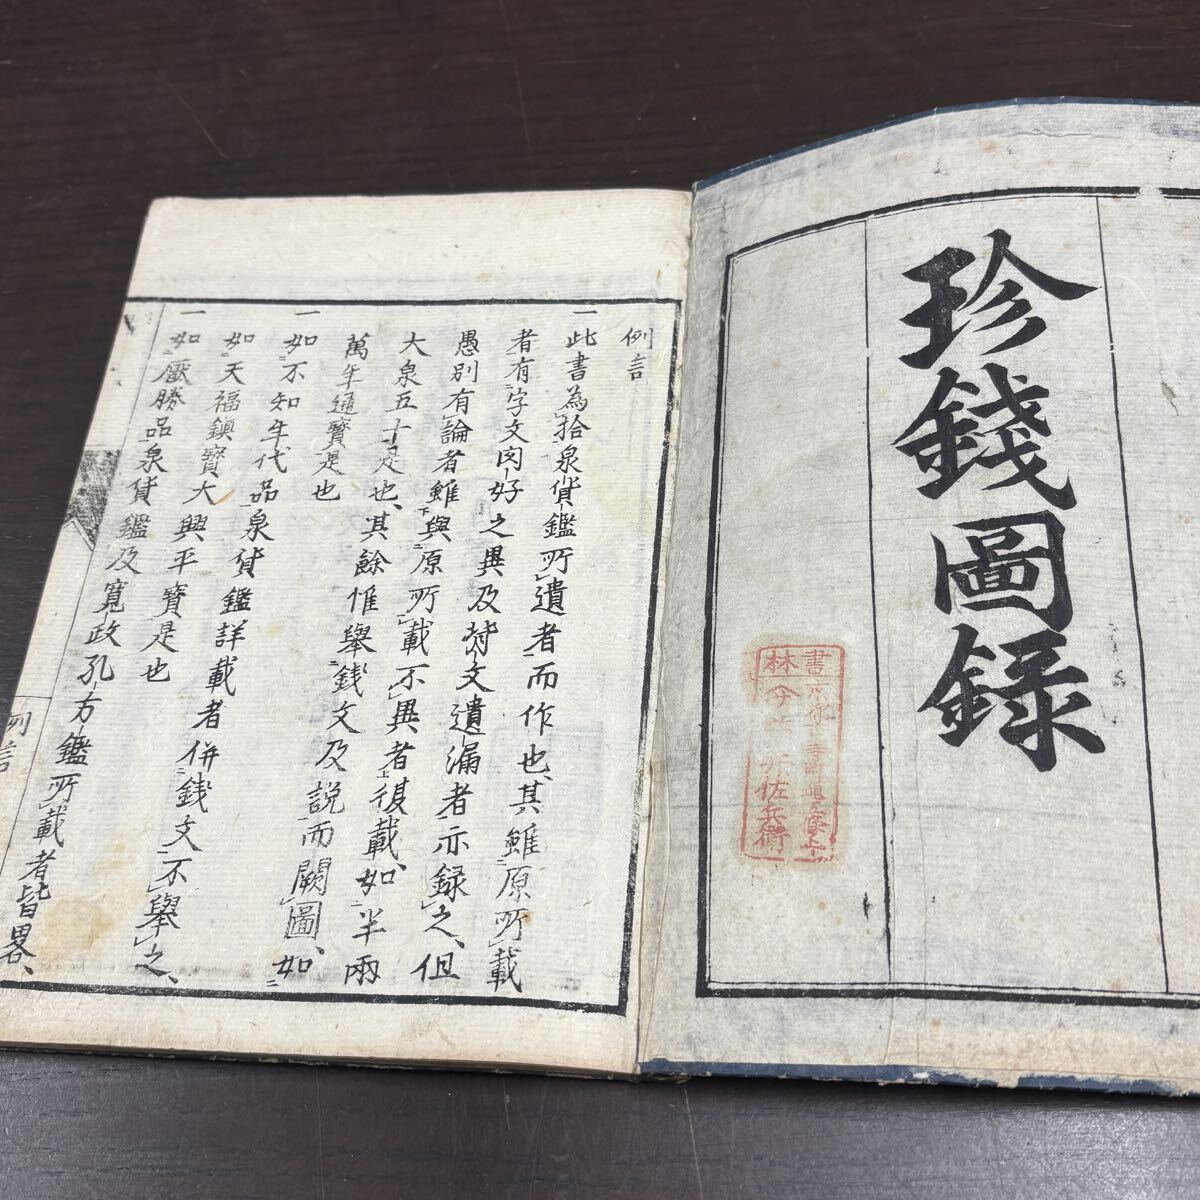 珍錢圖錄
書林
佐兵衛
例言
一此書為拾泉貨鑑所遺者而作也、其雖原所載
者有字文肉好之異及背文遺漏者亦録之、但
愚別有論者雖與原所載不異者復載、如半兩
大泉五十是也、其餘惟舉銭文及説而闕圖、如
萬年通寶是也
一如不知年代品泉貨鑑詳載者併銭文不舉之、
如天福鎮寶大興平寶是也
一如厭勝品泉貨鑑及寬政孔方鑑所載者皆畧、
例言